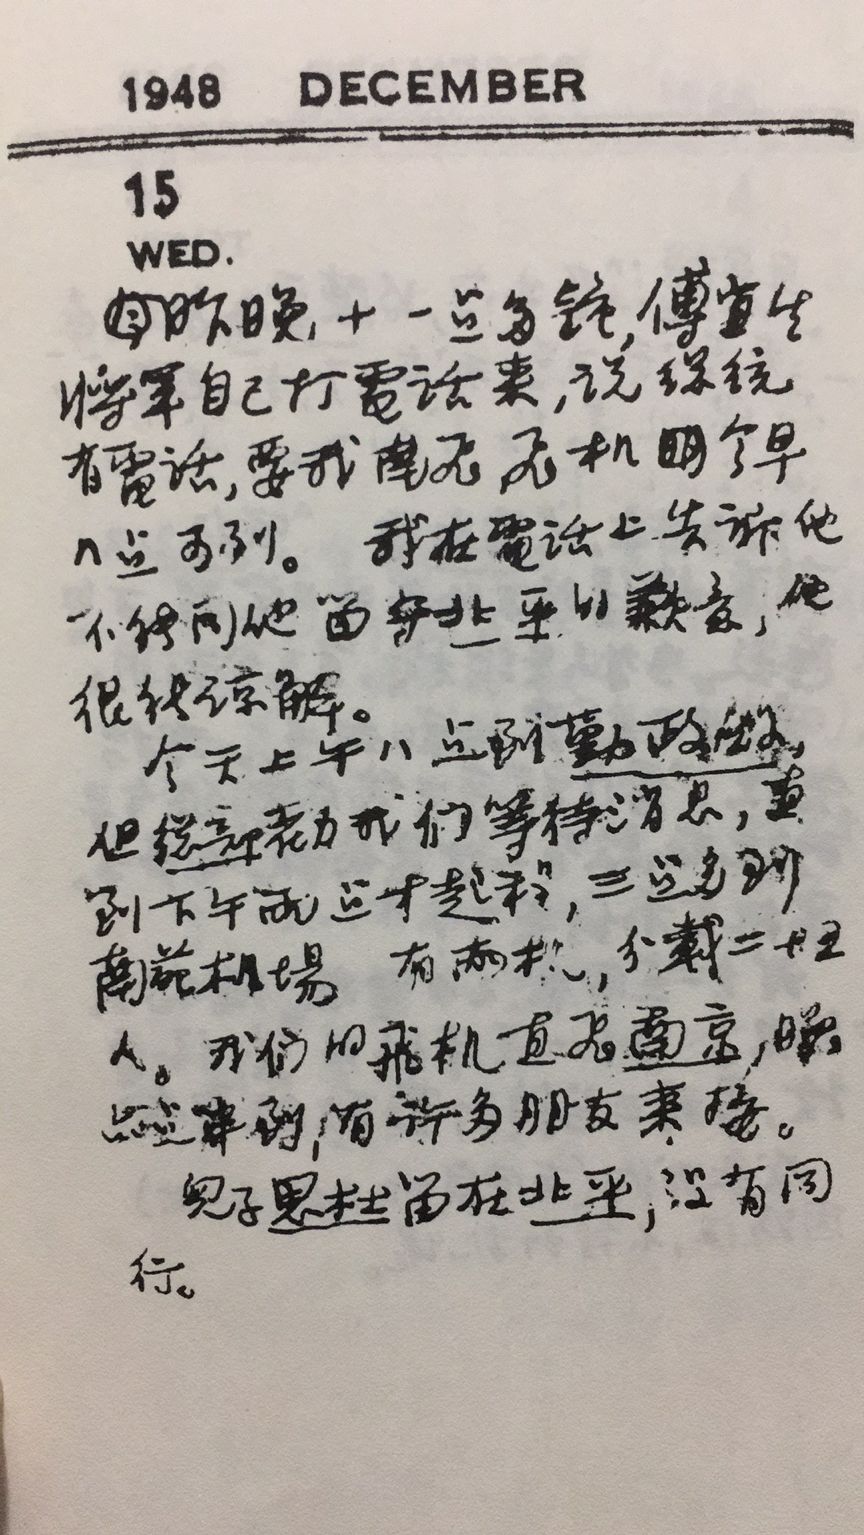 1948 DECEMBER
15
WED.
昨晚十一点多鐘,傅宜生
將軍自己打電話来,说總统
有電話,要我南飞,飞机今早
八点可到。 我在電話上告訴他
不能同他留守北平的歉意,他
很能谅解。
今天上午八点到勤政殿,
但總部劝我们等待消息,直
到下午兩点才起程,三点多到
南苑机場 有兩机,分載二十五
人。我们的飛机直飞南京,晚
六点半到,有許多朋友来接。
兒子思杜留在北平,沒有同
行。